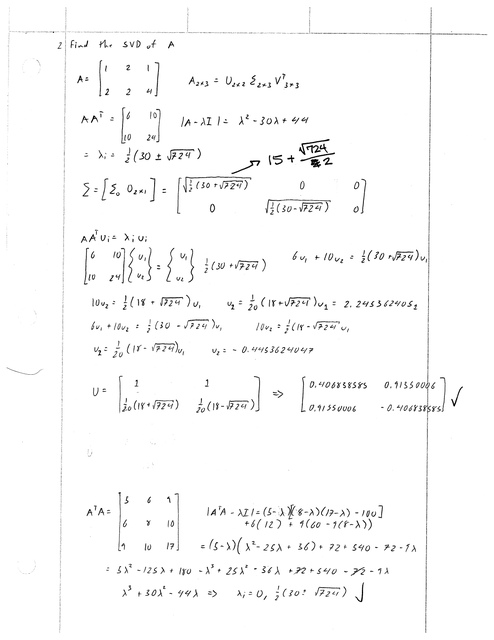 2 Find the SVD of A
A = [1 2 1; 2 2 4] A₂ₓ₃ = U₂ₓ₂ Σ₂ₓ₃ Vᵀ₃ₓ₃
AAᵀ = [6 10; 10 24] |A-λI| = λ² - 30λ + 44
= λᵢ = ½(30 ± √724) → 15 + √724/2
Σ = [Σ₀ 0₂ₓ₁] = [√(½(30+√724)) 0 0; 0 √(½(30-√724)) 0]
AAᵀUᵢ = λᵢUᵢ
[6 10; 10 24]{u₁; u₂} = {u₁; u₂} ½(30+√724) 6u₁ + 10u₂ = ½(30+√724)u₁
10u₂ = ½(18 + √724)u₁ u₂ = 1/20(18+√724)u₁ = 2.2453624052
6u₁ + 10u₂ = ½(30 - √724)u₁ 10u₂ = ½(18 - √724 u₁
u₂ = 1/20(18 - √724)u₁ u₂ = -0.4453624047
U = [1 1; 1/20(18+√724) 1/20(18-√724)] ⇒ [0.406838585 0.91350006; 0.91350006 -0.406838585] ✓
AᵀA = [5 6 9; 6 8 10; 9 10 17] |AᵀA - λI| = (5-λ)[(8-λ)(17-λ) - 100]
+6(12) + 9(60 - 9(8-λ))
= (5-λ)(λ² - 25λ + 36) + 72 + 540 - 72 - 9λ
= 5λ² - 125λ + 180 - λ³ + 25λ² - 36λ + 72 + 540 - 72 - 9λ
λ³ + 30λ² - 44λ ⇒ λᵢ = 0, ½(30 ± √724) ✓